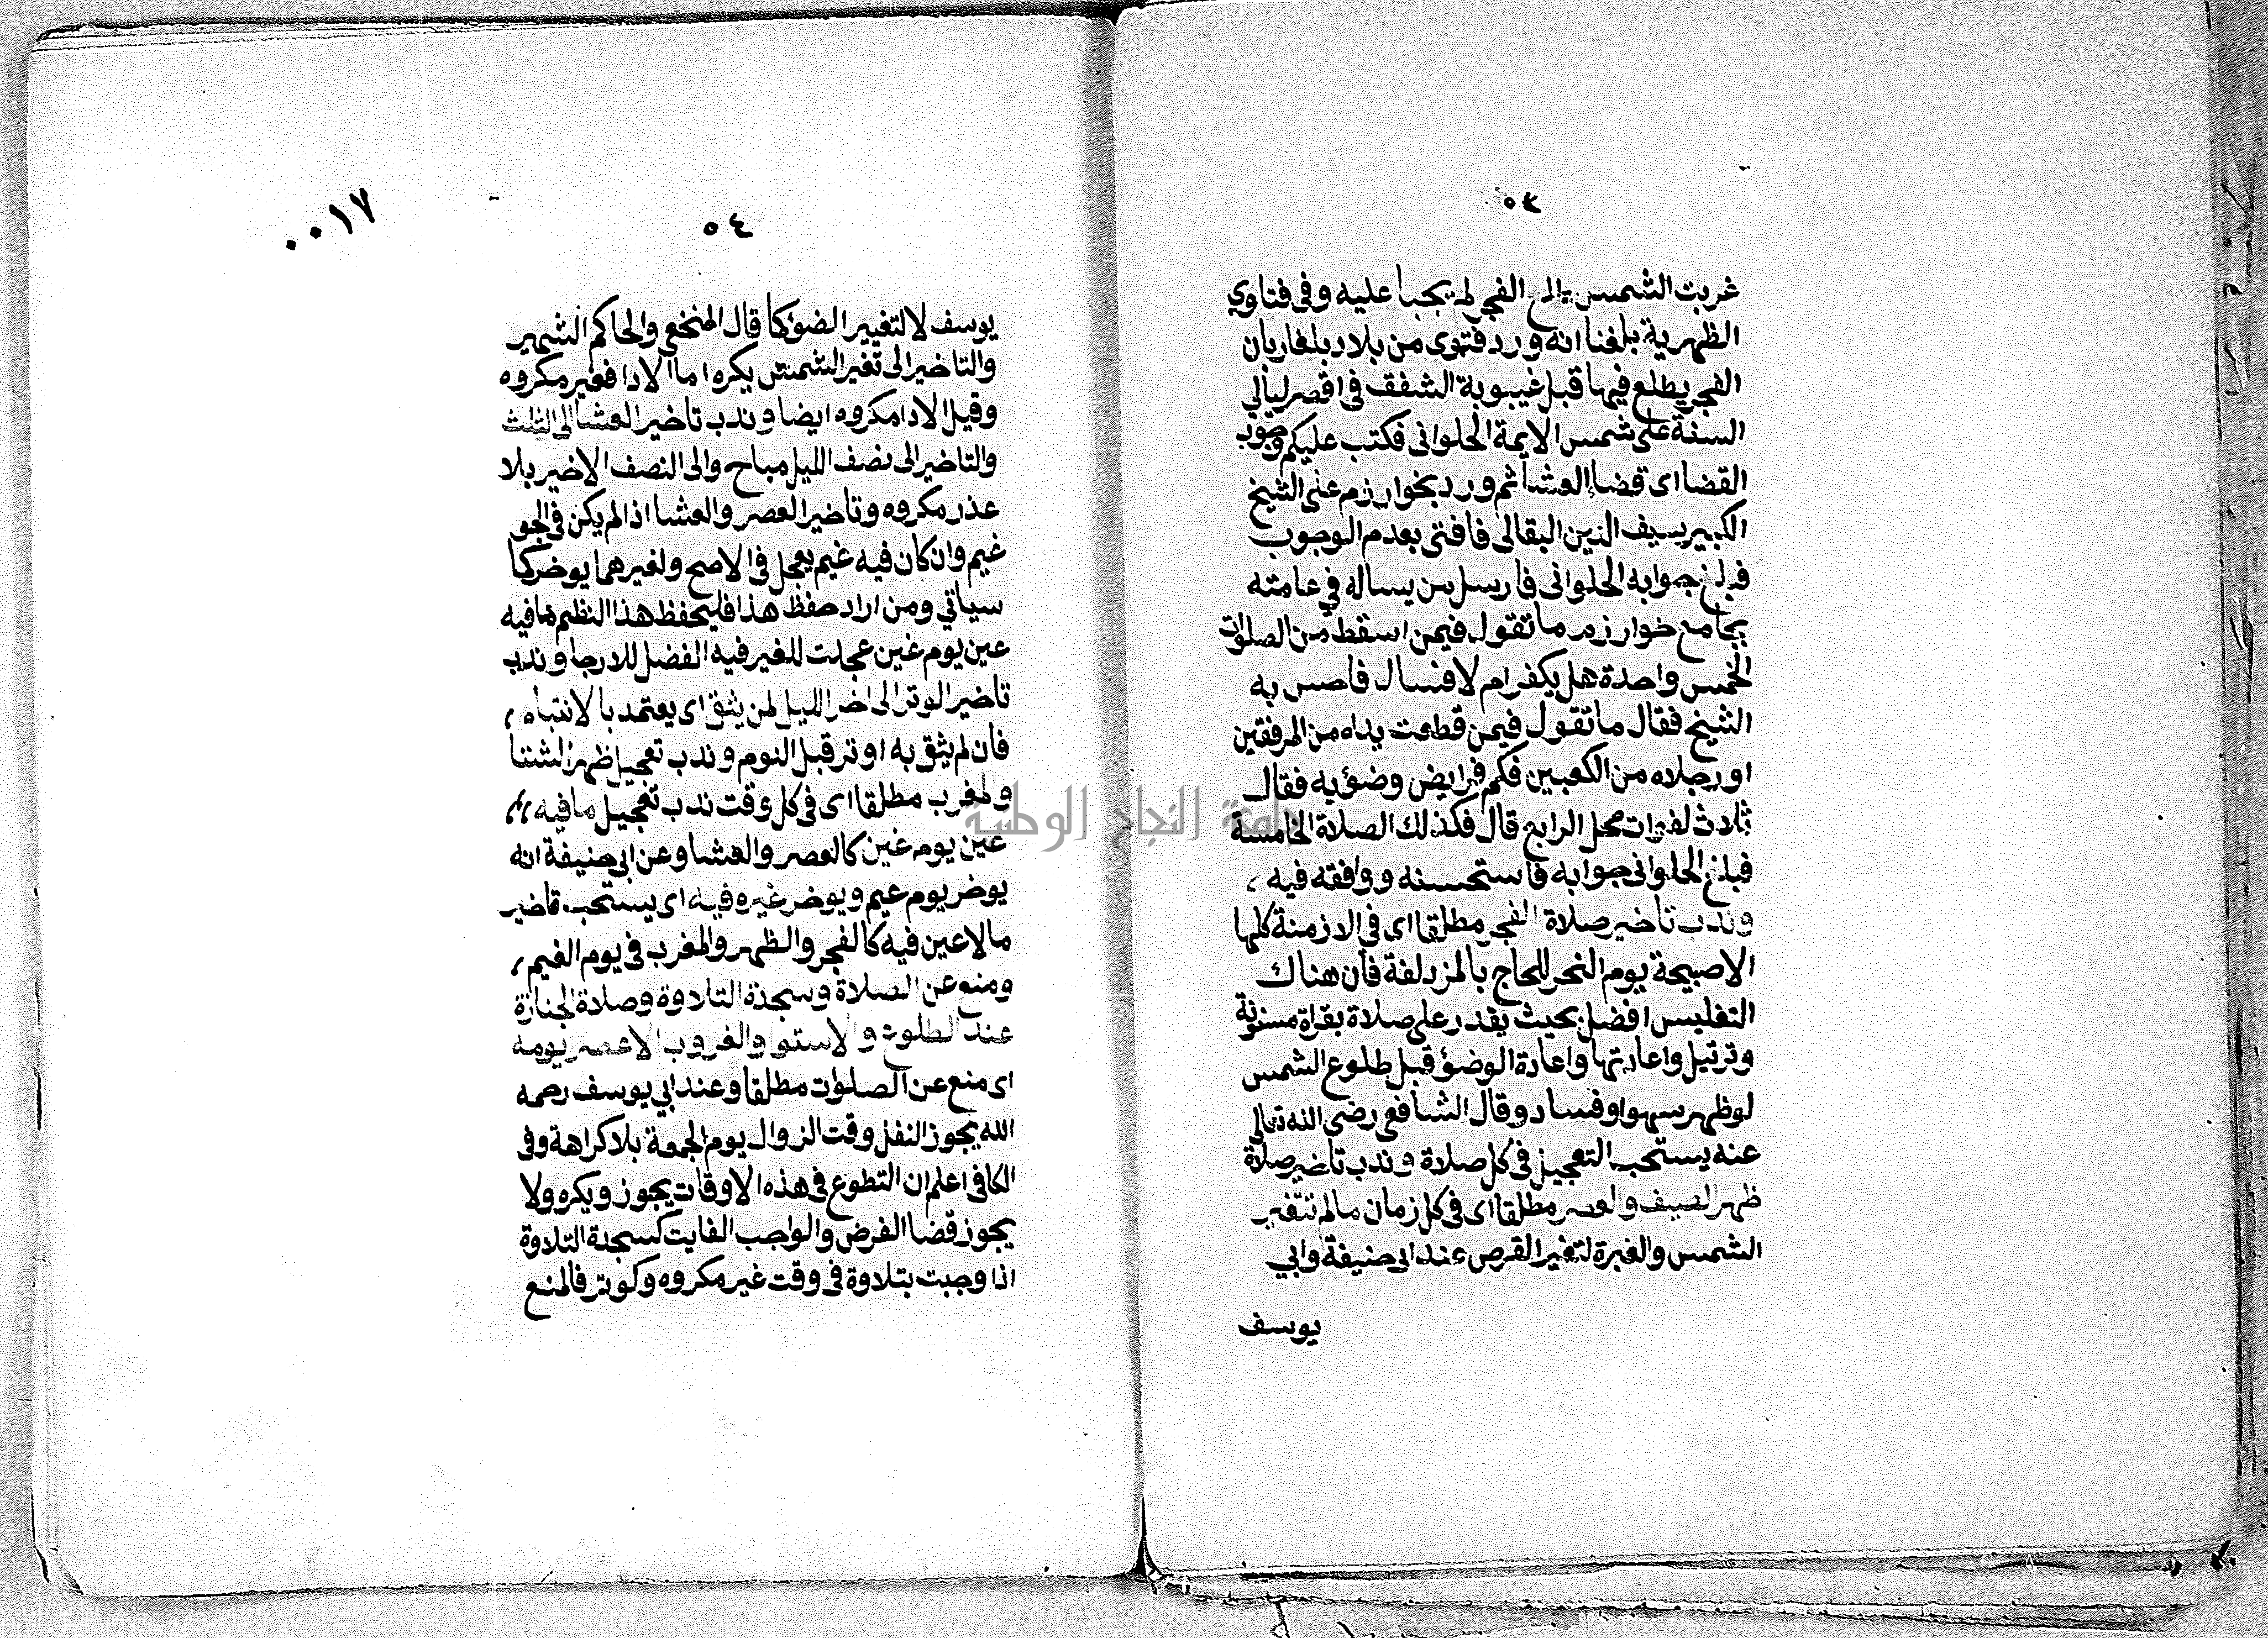 ٥٣
غربت الشمس طلع الفجر لم يجبا عليه وفي فتاوي
الظهرية بلغنا انه ورد فتوى من بلاد بلغار بان
الفجر يطلع فيها قبل غيبوبة الشفق في اقصر ليالي
السنة على شمس الايمة الحلواني فكتب عليكم وجوب
القضا اى قضا العشا ثم ورد بخوارزم على الشيخ
الكبير سيف الدين البقالى فافتى بعدم الوجوب
فبلغ جوابه الحلوانى فارسل من يساله في عامته
بجامع خوارزم ما تقول فيمن اسقط من الصلوات
الخمس واحدة هل يكفر ام لا فسال فاحس به
الشيخ فقال ما تقول فيمن قطعت يداه من المرفقين
او رجلاه من الكعبين فكم فرايض وضؤيه فقال
ثلاث لفوات محل الرابع قال فكذلك الصلاة الخامسة
فبلغ الحلوانى جوابه فاستحسنه ووافقه فيه ،
وندب تاخير صلاة الفجر مطلقا اى في الازمنة كلها
الا صبيحة يوم النحر للحاج بالمزدلفة فان هناك
التغليس افضل بحيث يقدر على صلاة بقراة مسنونة
وترتيل واعادتها واعادة الوضؤ قبل طلوع الشمس
لو ظهر سهو او فساد وقال الشافعى رضى الله تعالى
عنه يستحب التعجيل فى كل صلاة وندب تاخير صلاة
ظهر الصيف والعصر مطلقا اى فى كل زمان ما لم تتغير
الشمس والغبرة لتغير القرص عند ابى حنيفة وابي
يوسف
٠٠١٧
٥٤
يوسف لا لتغيير الضوء كما قال النخعي والحاكم الشهير
والتاخير الى تغير الشمس يكره اما الادا فغير مكروه
وقيل الادا مكروه ايضا وندب تاخير العشا الى الثلث
والتاخير الى نصف الليل مباح والى النصف الاخير بلا
عذر مكروه وتاخير العصر والعشا اذا لم يكن فى الجو
غيم وان كان فيه غيم يعجل فى الاصح ولغيرهما يوخر كما
سياتي ومن اراد حفظ هذا فليحفظ هذا النظم ما فيه
عين يوم غين عجلت للغير فيه الفضل للارجا وندب
تاخير الوتر الى اخر الليل لمن يثق اى يعتمد بالانتباه ،
فان لم يثق به اوتر قبل النوم وندب تعجيل ظهر الشتا
والمغرب مطلقا اى فى كل وقت ندب تعجيل ما فيه ،،
عين يوم غين كالعصر والعشا وعن ابى حنيفة انه
يوخر يوم غيم ويوخر غيره فيه اى يستحب تاخير
ما لا عين فيه كالفجر والظهر والمغرب فى يوم الغيم ،
ومنع عن الصلاة وسجدة التلاوة وصلاة الجنازة
عند الطلوع والاستوا والغروب الا عصر يومه
اى منع عن الصلوات مطلقا وعند ابي يوسف رحمه
الله يجوز النفل وقت الزوال يوم الجمعة بلا كراهة وفى
الكافى اعلم ان التطوع فى هذه الاوقات يجوز ويكره ولا
يجوز قضا الفرض والواجب الفايت كسجدة التلاوة
اذا وجبت بتلاوة فى وقت غير مكروه وكوتر فالمنع
جامعة النجاح الوطنية